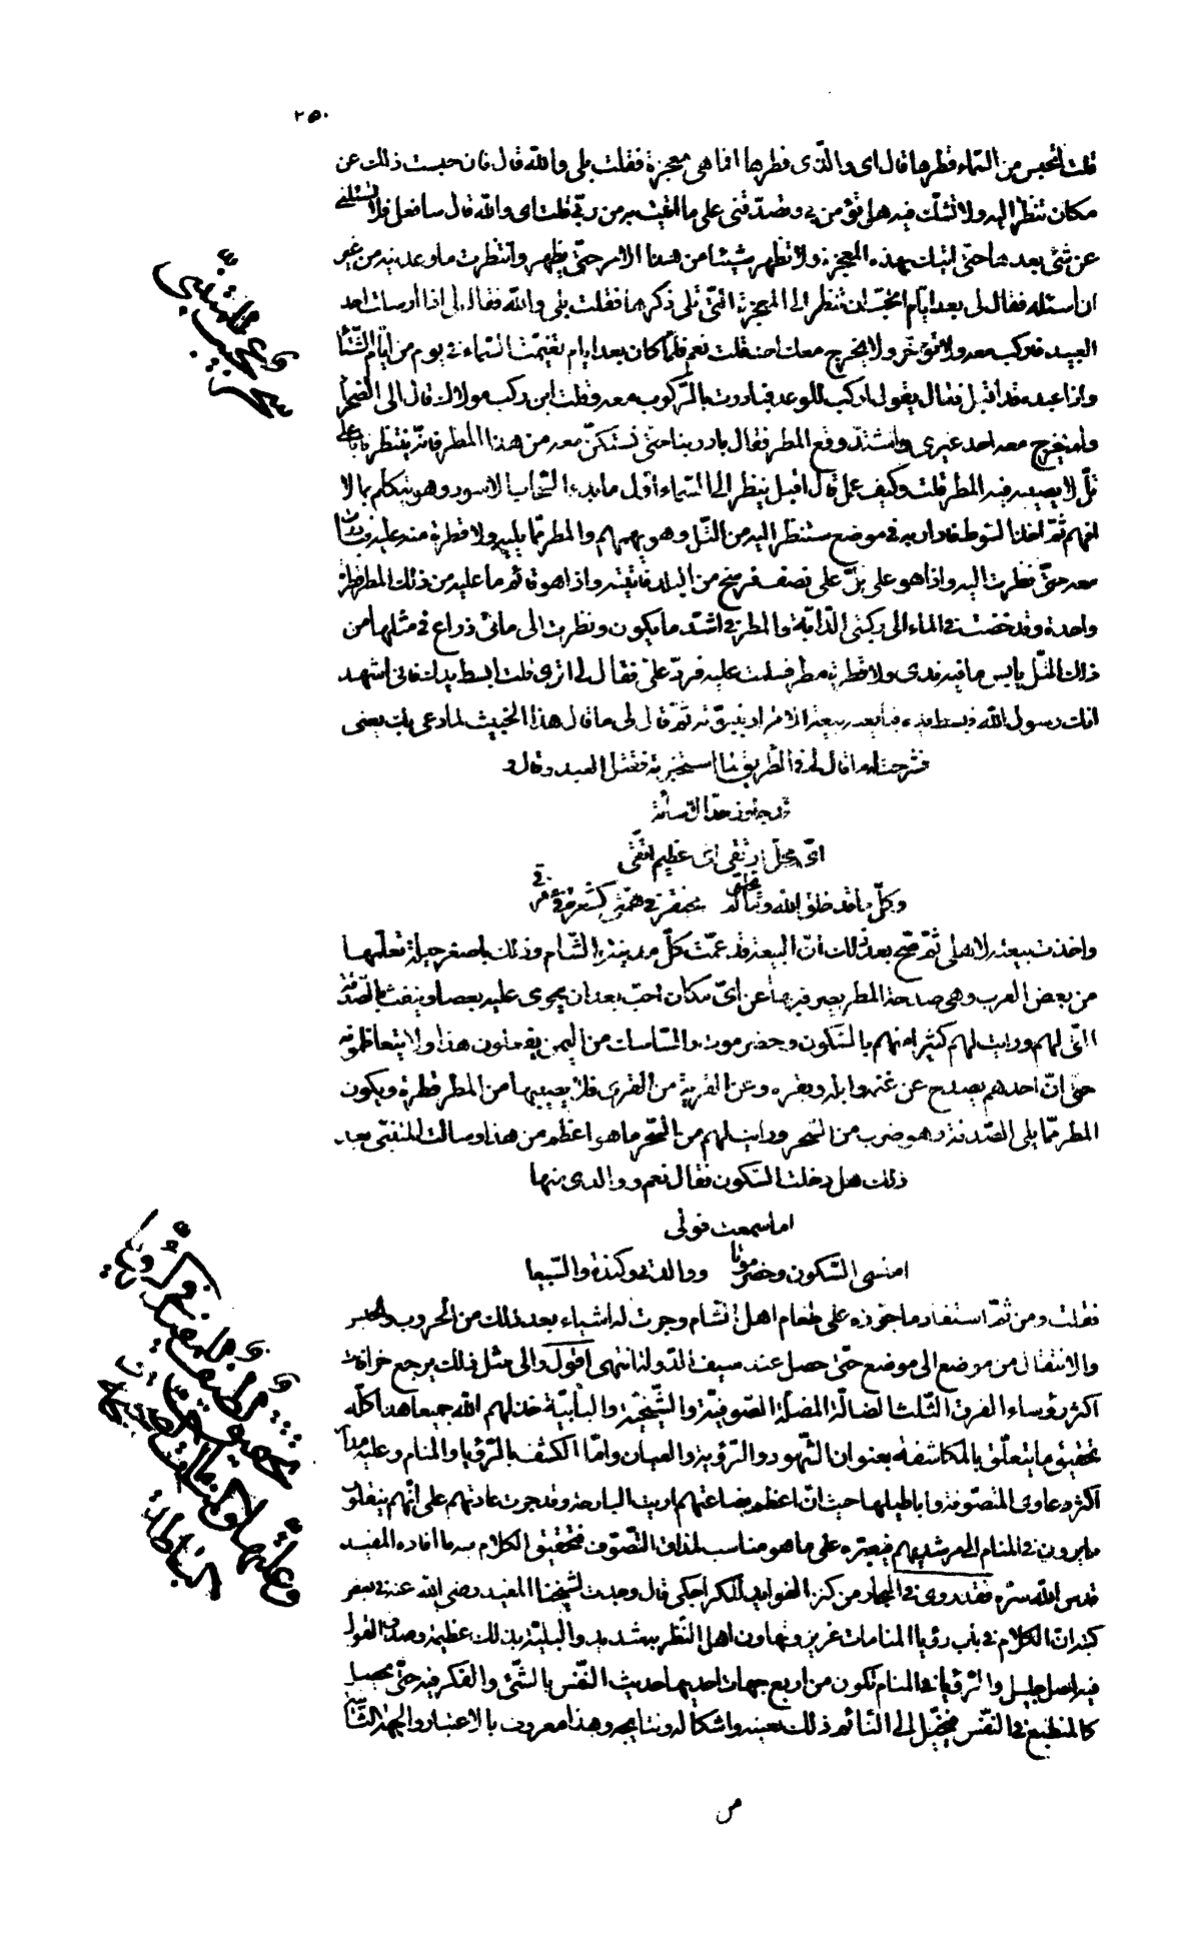 ٢٥٠
قلت تحبس من السماء قطرها قال اى والذى فطرها افما هى معجزة فقلت بلى والله قال فان حبست ذلك عن
مكان تنظر اليه ولا تشك فيه هل تؤمن بى وتصدقنى على ما اتيت به من ربى قلت اى والله قال سافعل فلا تسئلنى
عن شئ بعدها حتى اتيك بهذه المعجزة ولا تظهر شيئا من هذا الامر حتى يظهر وانتظرت ما وعدنيه من غير
ان اسئله فقال لى بعد ايام اتحب ان تنظر الى المعجزة التى جرى ذكرها فقلت بلى والله فقال لى اذا ارسلت احد
العبيد فاركب معه ولا تؤخر ولا يخرج معك احد قلت نعم فلما كان بعد ايام تغيمت السماء فى يوم من ايام الشتا
واذا عبده قد اقبل فقال يقول اركب للوعد فبادرت بالركوب معه وقلت اين ركب مولاك قال الى الصحرا
ولم يخرج معه احد غيرى واشتد وقع المطر فقال بادر بنا حتى نستكن معه من هذا المطر فانه ينتظرنا باعلى
تل لا يصيبه فيه المطر قلت وكيف عمل قال اقبل ينظر الى السماء اول ما بدء السحاب الاسود وهو يتكلم بما لا
افهم ثم اخذ السوط فادار به فى موضع ستنظر اليه من التل وهو يهمهم والمطر مما يليه ولا قطرة منه عليه
معه حتى نظرت اليه واذا هو على تل على نصف فرسخ من البلد فاتيته واذا هو قائم ما عليه من ذلك المطر قطرة
واحدة وقد خضت فى الماء الى ركبتى الدابة والمطر فى اشد ما يكون ونظرت الى مائتى ذراع فى مثلها من
ذلك التل يابس ما فيه ندى ولا قطرة مطر فسلمت عليه فرد على فقال لى ما ترى قلت ابسط يدك فانى اشهد
انك رسول الله فبسط يده فبايعته بيعة الاقرار بنبوته ثم قال لى ما قال هذا الخبيث لما دعى بك يعنى
فشرحت له ما قال لى فى الطريق لما استخبرته فقتل العبد وقال
اى محل ارتقى اى عظيم اتقى
وكل ما قد خلق الله وما لم يخلق محتقر فى همتى كشعرة فى مفرقى
واخذت بيعته لاهلى ثم صح بعد ذلك ان البيعة قد عمت كل مدينة بالشام وذلك باصغر حيلة تعلمها
من بعض العرب وهى صدحة المطر يصرفه بها عن اى مكان احب بعد ان يحوى عليه بعصا وينفث بالصدحة
التى لهم ورايت لهم كثيرا منهم بالسكون وحضرموت والسكاسك من اليمن يفعلون هذا ولا يتعاظمونه
حتى ان احدهم يصدح عن غنمه وابله وبقره وعن القرية من القرى فلا يصيبها من المطر قطرة ويكون
المطر مما يلى الصدحة وهو ضرب من السحر ورايت لهم من السحر ما هو اعظم من هذا وسالت المتنبى بعد
ذلك هل دخلت السكون فقال نعم ووالدى منها
اما سمعت قولى
امنسى السكون وحضرموتا ووالدتى وكندة والسبيعا
فقلت ومن ثم استفاد ما جوزه على طغام اهل الشام وجرت له اشياء بعد ذلك من الحروب والحبس
والانتقال من موضع الى موضع حتى حصل عند سيف الدولة انتهى اقول والى مثل ذلك يرجع خرافات
اكثر رؤساء الفرق الثلث الضالة المضلة الصوفية والشيخية والبابية خذلهم الله جميعا هذا كله
تحقيق ما يتعلق بالمكاشفة بعنوان الشهود والرؤية والعيان واما الكشف بالرؤيا والمنام وعليه مدار
اكثر دعاوى المتصوفة واباطيلها حيث ان اعظم بضاعتهم اريت البارحة وقد جرت عادتهم على انهم ينقلون
ما يرون فى المنام الى مرشديهم فيعبره على ما هو مناسب لمذاق التصوف فتحقيق الكلام فيه ما افاده المفيد
قدس الله سره فقد روى فى البحار من كنز الفوائد للكراجكى قال وجدت لشيخنا المفيد رضى الله عنه فى بعض
كتبه ان الكلام فى باب رؤيا المنامات عزيز وتهاون اهل النظر به شديد والبلية بذلك عظيمة وصدق القول
فيه اصل جليل والرؤيا فى المنام تكون من اربع جهات احديها حديث النفس بالشئ والفكر فيه حتى يحصل
كالمنطبع فى النفس فيخيل الى النائم ذلك بعينه واشكاله ونتايجه وهذا معروف بالاعتبار والجهة الثانية